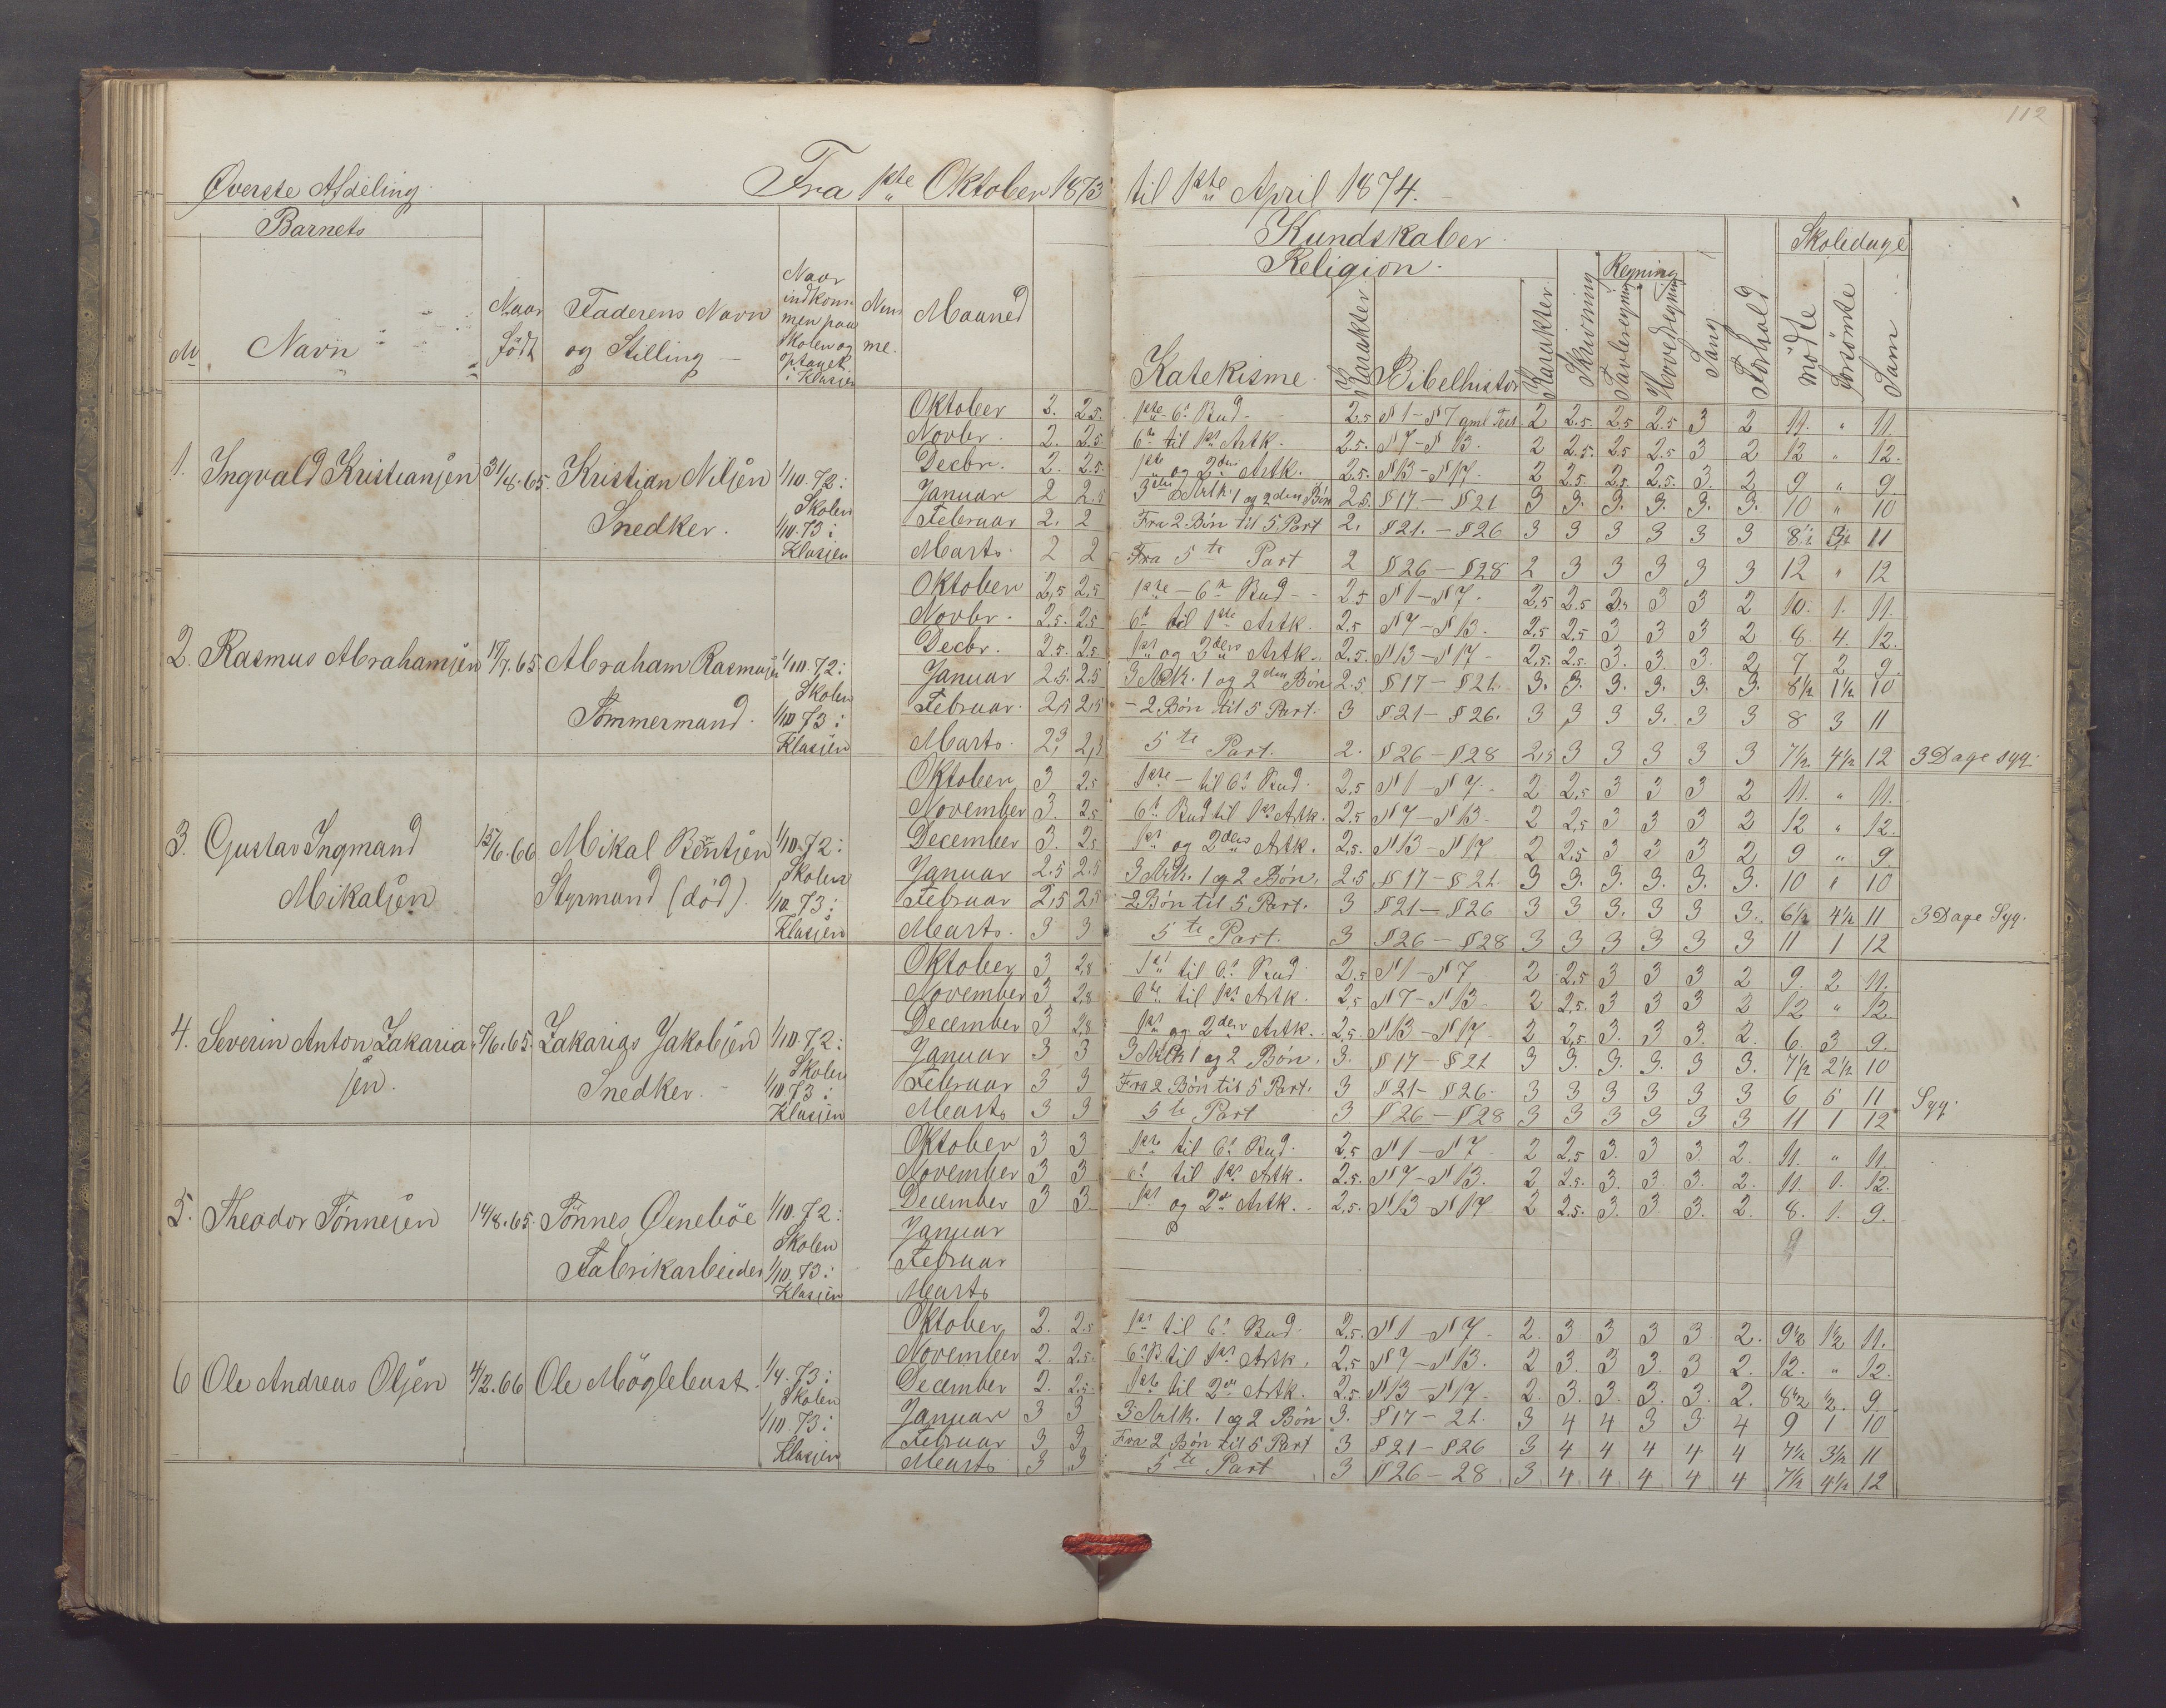 112
Øverste Afdeling. Fra 1ste Oktober 1873 til 1ste April 1874.
Barnets Kundskaber. Skoledage
Religion. Regning
№ Navn Naar Født Faderens Navn og Stilling Naar indkommen paa Skolen og optaget i Klassen Numme. Maaned Katekisme. Karakter Bibelhistor Karakter Skrivning Tavleregning Hovedregning Sang Forhold mødte forsømte Sum
1. Ingvald Kristiansen 31/8.65. Kristian Nilsen Snedker. 1/10.72: Skolen 1/10.73: Klassen
Oktober 2. 2.5. 1ste-6te Bud- 2.5 § 1-§ 7 gml Test 2 2.5. 2.5 2.5 3 2 11. " 11
Novbr. 2. 2.5 6te til 1ste Artk. 2.5. § 7-§ 13. 2 2.5. 2.5 2.5 3 2 12 " 12.
Decbr. 2. 2.5 1ste og 2den Artk. 2.5. § 13-§ 17. 2 2.5. 2.5. 2.5. 3. 2 9 " 9.
Januar 2 2.5 3die Artk. 1 og 2den Bøn 2.5. § 17.-§ 21 3 3. 3. 3. 3. 3. 10 " 10
Februar 2. 2 Fra 2 Bøn til 5 Part 2. § 21.-§ 26 3 3 3 3 3 3 8½ 11
Marts. 2 2 Fra 5te Part 2 § 26-§ 28 2 3 3 3 3 3 12 " 12
2. Rasmus Abrahamsen 19/7.65 Abraham Rasmusen Tømmermand. 1/10.72: Skolen 1/10 73: Klassen
Oktober 2,5 2,5 1ste-6te Bud-- 2.5 § 1-§ 7. 2,5 2.5 3 3 2 10. 1. 11.
Novbr. 2.5. 2.5 6te til 1ste Artk. 2.5 § 7-§ 13. 2,5 2,5 3 3 3 2 8. 4. 12.
Decbr. 2.5. 2.5. 1ste og 2den Artk.. 2.5. § 13-§ 17- 2,5. 2.5. 3. 3. 3. 2 7 2 9.
Januar 2.5. 2.5 3 Artk. 1 og 2den Bøn 2.5. § 17-§ 21. 3. 3. 3. 3. 3. 3. 8½ 1½ 10
Februar. 2,5 2,5 -2 Bøn til 5 Part. 3 § 21-§ 26. 3 3 3 3. 3 3 8 3 11
Marts. 5te Part. 2. § 26-§ 28 2,5 3 3 3 3 3 7½ 4½ 12 3 Dage syg.
3. Gustav Ingmand Mikalsen 15/6.66 Mikal Styrmand (død). 1/10.72: Skolen 1/10.73: Klassen
Oktober 3 2.5 1ste-til 6te Bud. 2.5 § 1-§ 7.- 2 2,5 3 3 3 2 11. " 11.
November 3. 2,5 6te Bud til 1ste Artk. 2.5 § 7-§ 13- 2 2,5 3 3 3 2 12 " 12.
December 3. 2.5 1ste og 2den Artk. 2.5. § 13-§ 17 2 2,5 3 3 3 2 9 " 9.
Januar 2.5 2.5 3 Artk. 1 og 2 Bøn. 2.5 § 17-§ 21. 3 3. 3. 3. 3. 3. 10 " 10
Februar 2,5 2,5 -2 Bøn til 5 Part. 3 § 21-§ 26 3 3 3. 3 3 3. 6½ 4½ 11 3 Dage Syg.
Marts. 3 3 5te Part. 3 § 26-§ 28 3 3 3 3 3 3 11 1 12
4. Severin Anton Zakariasen. 7/6.65. Zakarias Jakobsen Snedker. 1/10.72: Skolen 1/10 73: Klassen
Oktober 3 2,8 1ste til 6te Bud 2.5 § 1-§ 7 2 2,5 3 3 3 2 9. 2 11.
November 3 2,8 6te til 1ste Artk. 2,5 § 7-§ 13- 2 2,5. 3 3 3 2 12 " 12.
December 3 2,8 1ste og 2den Artk.. 2.5. § 13-§ 17. 2 2,5 3. 3. 3. 2. 6. 3 9.
Januar 3 3 3 Artk 1 og 2 Bøn. 3. § 17-§ 21 3 3. 3. 3. 3 3. 7½ 2½ 10
Februar 3 3 Fra 2 Bøn til 5 Part. 3 § 21-§ 26. 3 3 3 3 3 3 6 5 11 Syg.
Marts 3 3 5te Part 3 § 26-§ 28 3 3 3 3 3 3 11 1 12
5. Theodor Tønnesen 14/8.65. Tønnes Øenebøe Fabrikarbeider 1/10.72: Skolen 1/10.73: Klassen
Oktober 3 3 1ste til 6te Bud. 2,5 § 1-§ 7. 2 2,5 3. 3 3. 2. 11. " 11.
November 3 3 6te til 1ste Artk. 2.5. § 7-§ 13. 2 2.5. 3. 3. 3. 2. 11 1. 12.
December 3 3 1ste og 2den Artk.. 2,5. § 13-§ 17 2 2.5. 3. 3 3. 2. 8. 1. 9.
Januar
Februar
Marts
6 Ole Andreas Olsen 4/2.66 Ole Møglebust. 1/4.73: Skolen 1/10.73: Klassen
Oktober 2. 2.5 1ste til 6te Bud. 2,5. § 1-§ 7- 2. 3 3 3 3 2. 9½ 1½ 11.
November 2. 2.5. 6te B til 1ste Artk. 2,5 § 7-§ 13. 2 3. 3 3. 3 2. 12. " 12.
December 2. 2.5. 1ste til 2den Artk. 2,5. § 13-§ 17- 2. 3. 3. 3. 3. 2. 8½ ½. 9.
Januar 3 3 3 Artk. 1 og 2 Bøn 3. § 17-21. 3 4 4 3 3 4 9 1 10
Februar 3 3 Fra 2 Bøn til 5 Part 3 § 21-§ 26 3 4 4 4 4 4 7½ 3½ 11
Marts 3 3 5te Part 3 § 26-28 3 4 4 4 4 4 7½ 4½ 12